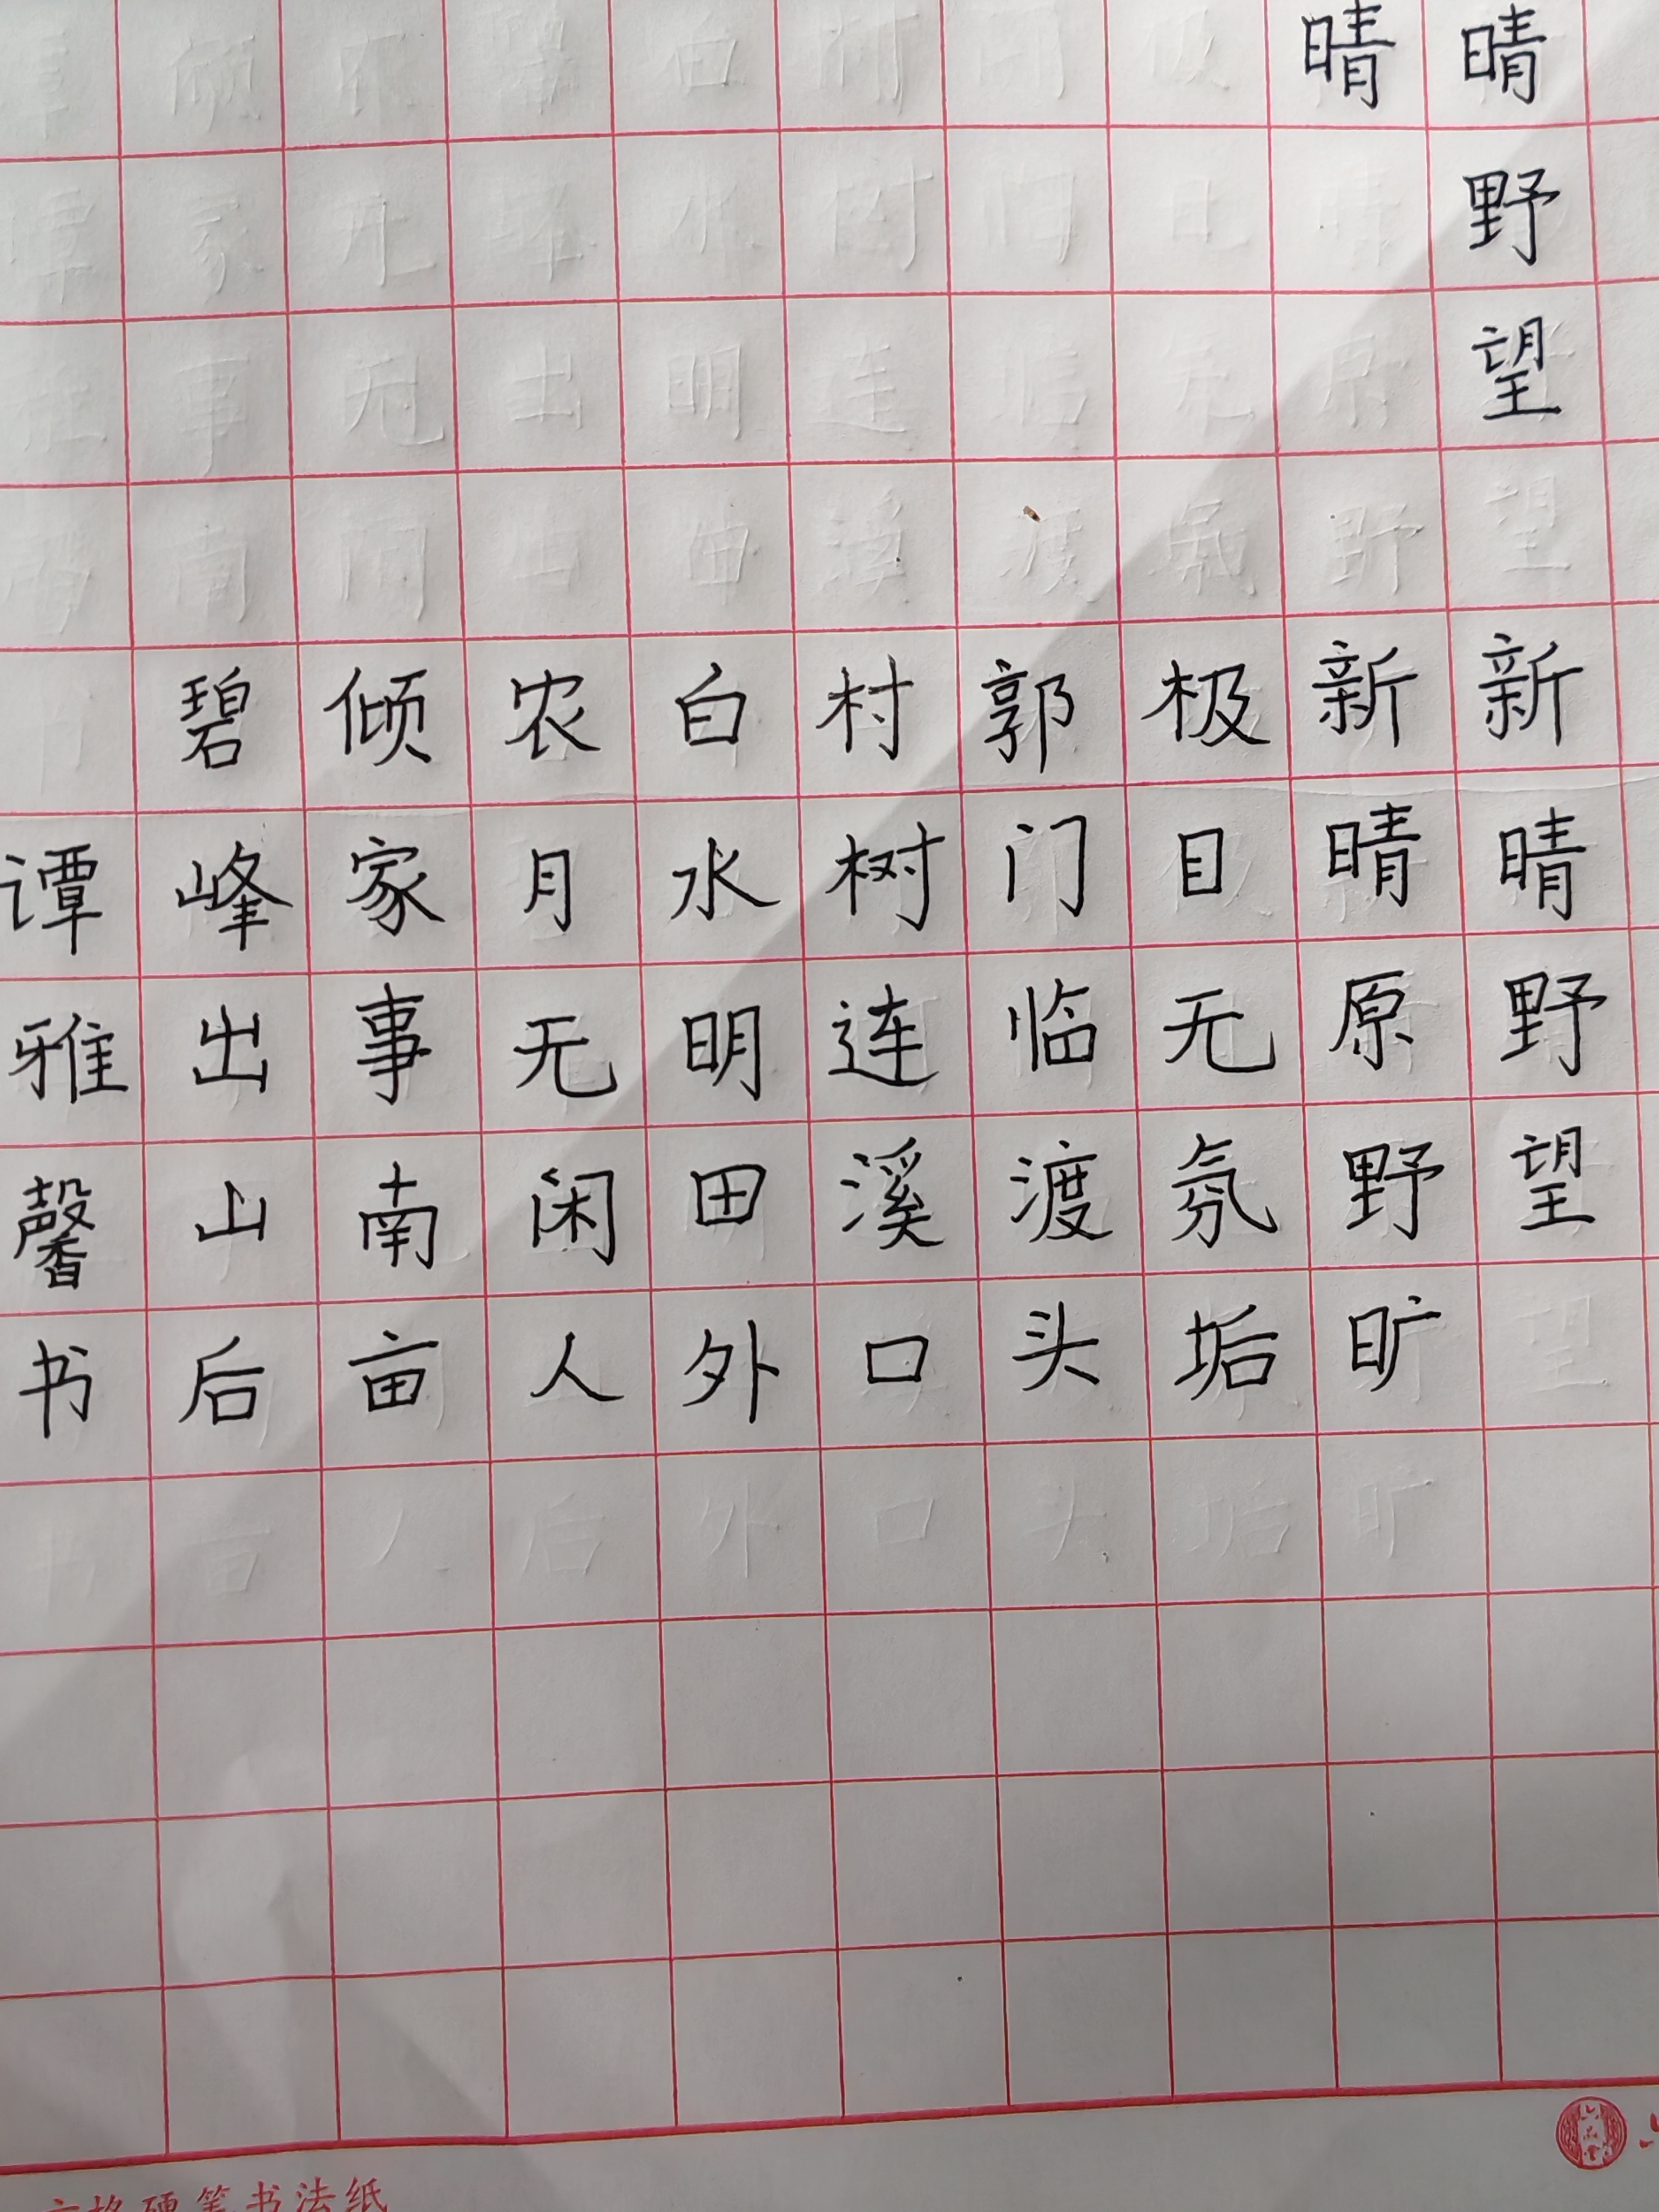 晴野望
新晴野望
晴
新晴原野旷
极目无氛垢
郭门临渡头
村树连溪口
白水明田外
农月无闲人
倾家事南亩
碧峰出山后
谭雅馨书
方格硬笔书法纸